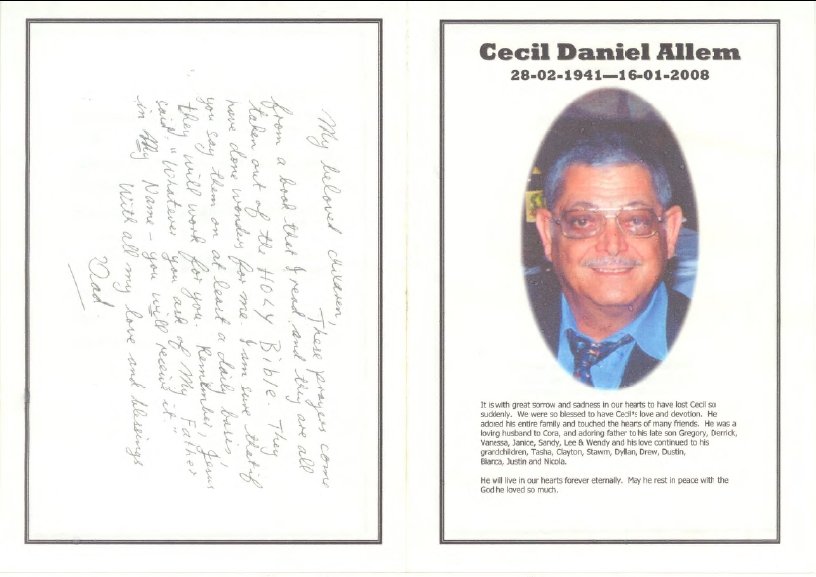 My beloved children,
These prayers come
from a book that I read, and they are all
taken out of the HOLY Bible. They
have done wonders for me. I am sure that if
you say them on at least a daily basis,
they will work for you. Remember, Jesus
said: "Whatever you ask of My Father
in My Name - you will receive it"
With all my love and blessings
Dad.
Cecil Daniel Allem
28-02-1941—16-01-2008
It is with great sorrow and sadness in our hearts to have lost Cecil so
suddenly. We were so blessed to have Cecil's love and devotion. He
adored his entire family and touched the hearts of many friends. He was a
loving husband to Cora, and adoring father to his late son Gregory, Derrick,
Vanessa, Janice, Sandy, Lee & Wendy and his love continued to his
grandchildren, Tasha, Clayton, Stawm, Dyllan, Drew, Dustin,
Bianca, Justin and Nicola.
He will live in our hearts forever eternally. May he rest in peace with the
God he loved so much.